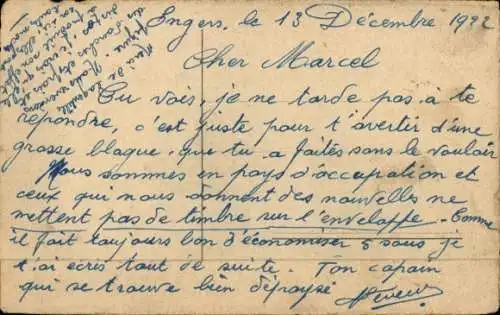 Engers, le 13 Décembre 1922
Cher Marcel
Tu vois, je ne tarde pas à te
répondre, c'est juste pour t'avertir d'une
grosse blague, que tu a faites sans le vouloir
Nous sommes en pays d'occupation et
ceux qui nous donnent des nouvelles ne
mettent pas de timbre sur l'enveloppe. Comme
il fait toujours bon d'économiser 5 sous je
t'ai écris tout de suite. Ton copain
qui se trouve bien dépaysé